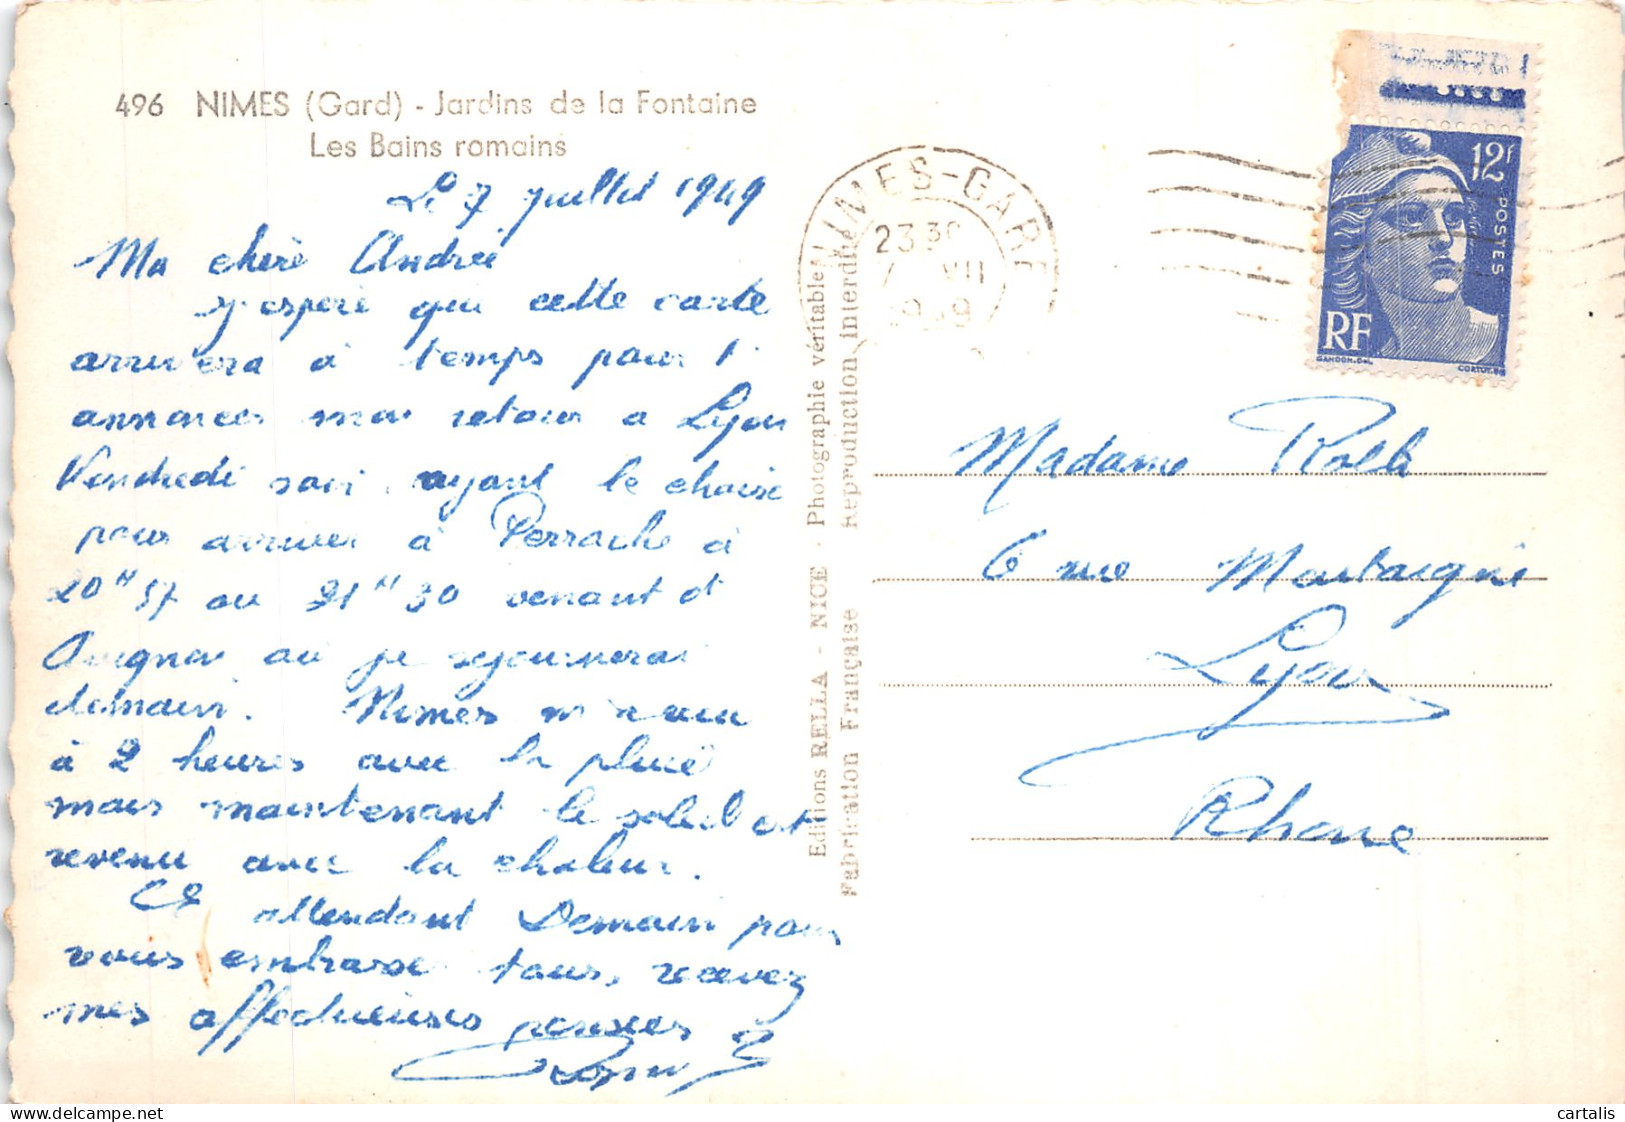 496 NIMES (Gard) - Jardins de la Fontaine
Les Bains romains
Le 7 juillet 1949
Ma chère Andrée
J'espère que cette carte
arrivera à temps pour t'
annoncer mon retour a Lyon
Vendredi soir, ayant le choise
pour arriver à Perrache à
20H57 ou 21H30 venant d'
Avignon où je séjournerai
demain. Nimes m'a vu
à 2 heures avec la pluie
mais maintenant le soleil est
revenu avec la chaleur.
attendant Demain pour
vous embrasser tous, recevez
mes affectueuses pensées
NIMES-GARE
23 30
7 VII
1949
12f
POSTES
RF
GANDON.Del.
CORTOT.SC
Madame Rolle
6 rue Montaigne
Lyon
Rhone
Editions RELLA - NICE - Photographie véritable
Fabrication Française Reproduction interdite
cartalis